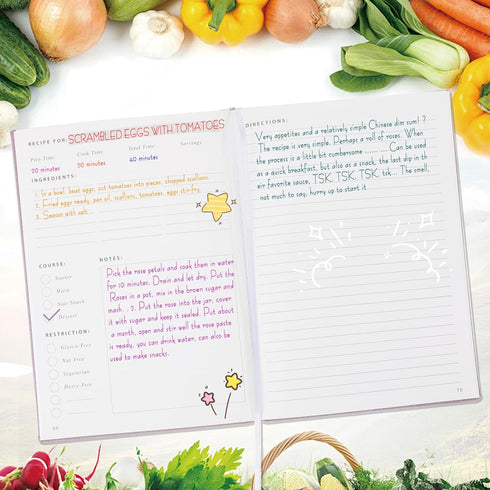 RECIPE FOR: SCRAMBLED EGGS WITH TOMATOES
Prep Time Cook Time Total Time Servings
20 minutes 20 minutes 40 minutes
INGREDIENTS:
1. In a bowl, beat eggs, cut tomatoes into pieces, chopped scallions.
2. Fried eggs ready, pan oil, scallions, tomatoes, eggs stirfry.
3. Season with salt.
COURSE:
Starter
Main
Side/Snack
Dessert
RESTRICTION:
Gluten-Free
Nut Free
Vegetarian
Dairy-Free
NOTES:
Pick the rose petals and soak them in water
for 10 minutes. Drain and let dry. Put the
Roses in a pot, mix in the brown sugar and
mash. . 3. Put the rose into the jar, cover
it with sugar and keep it sealed. Put about
a month, open and stir well the rose paste
is ready, you can drink water, can also be
used to make snacks.
DIRECTIONS:
Very appetites and a relatively simple Chinese dim sum! ?
The recipe is very simple. Perhaps a roll of roses. When
the process is a little bit cumbersome ...... Can be used
as a quick breakfast, but also as a snack, the last dip in th
eir favorite sauce, TSK, TSK, TSK, tsk... The smell,
not much to say, hurry up to start it